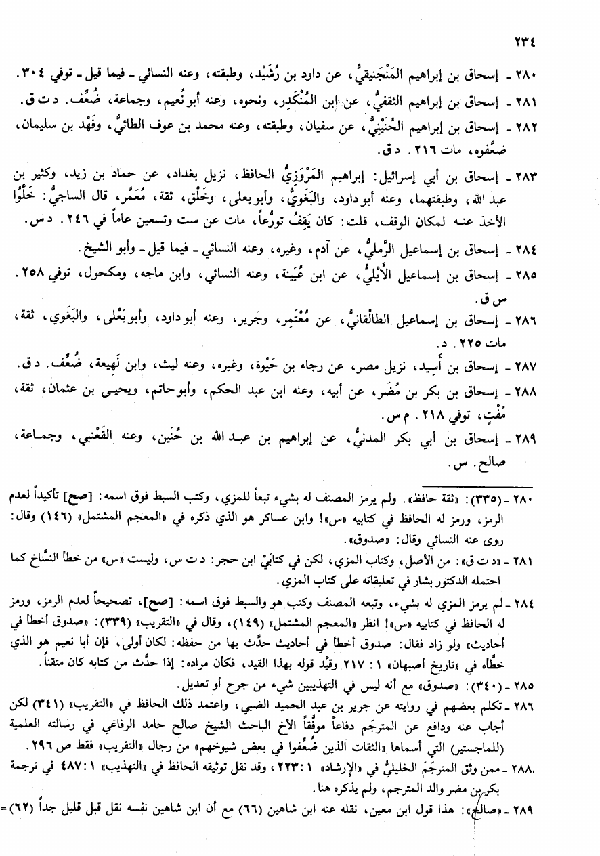 ٢٣٤
٢٨٠ - إسحاق بن إبراهيم المَنْجَنِيقيُّ، عن داود بن رُشَيْد، وطبقته، وعنه النسائي - فيما قيل - توفي ٣٠٤.
٢٨١ - إسحاق بن إبراهيم الثقفيُّ، عن ابن المُنْكَدِر، ونحوه، وعنه أبو نُعيم، وجماعة، ضُعِّف. د ت ق.
٢٨٢ - إسحاق بن إبراهيم الحُنَيْنِيُّ، عن سفيان، وطبقته، وعنه محمد بن عوف الطائيُّ، وفَهْد بن سليمان،
ضعَّفوه، مات ٢١٦. د ق.
٢٨٣ - إسحاق بن أبي إسرائيل: إبراهيم المَرْوَزِيُّ الحافظ، نزيل بغداد، عن حماد بن زيد، وكثير بن
عبد الله، وطبقتهما، وعنه أبو داود، والبَغَويُّ، وأبو يعلى، وخَلْق، ثقة، مُعَمَّر، قال الساجيُّ: خَلَّوا
الأخذ عنه لمكان الوقف، قلت: كان يَقِفُ تورُّعاً، مات عن ست وتسعين عاماً في ٢٤٦. د س.
٢٨٤ - إسحاق بن إسماعيل الرَّمليُّ، عن آدم، وغيره، وعنه النسائي - فيما قيل - وأبو الشيخ.
٢٨٥ - إسحاق بن إسماعيل الأَيْليُّ، عن ابن عُيَينة، وعنه النسائي، وابن ماجه، ومكحول، توفي ٢٥٨.
س ق.
٢٨٦ - إسحاق بن إسماعيل الطالْقانيُّ، عن مُعْتَمِر، وجَرير، وعنه أبو داود، وأبو يَعْلى، والبَغَوي، ثقة،
مات ٢٢٥. د.
٢٨٧ - إسحاق بن أَسِيد، نزيل مصر، عن رجاء بن حَيْوة، وغيره، وعنه ليث، وابن لَهيعة، ضُعِّف. د ق.
٢٨٨ - إسحاق بن بكر بن مُضَر، عن أبيه، وعنه ابن عبد الحكم، وأبو حاتم، ويحيى بن عثمان، ثقة،
مُفْتٍ، توفي ٢١٨. م س.
٢٨٩ - إسحاق بن أبي بكر المدنيُّ، عن إبراهيم بن عبد الله بن حُنَين، وعنه القَعْنَبي، وجماعة،
صالح. س.
٢٨٠ - (٣٣٥): «ثقة حافظ». ولم يرمز المصنف له بشيء تبعاً للمزي، وكتب السبط فوق اسمه: [صح] تأكيداً لعدم
الرمز، ورمز له الحافظ في كتابيه «س»! وابن عساكر هو الذي ذكره في «المعجم المشتمل» (١٤٦) وقال:
روى عنه النسائي وقال: «صدوق».
٢٨١ - «د ت ق»: من الأصل، وكتاب المزي، لكن في كتابَيْ ابن حجر: د ت س، وليست «س» من خطأ النسَّاخ كما
احتمله الدكتور بشار في تعليقاته على كتاب المزي.
٢٨٤ - لم يرمز المزي له بشيء، وتبعه المصنف وكتب هو والسبط فوق اسمه: [صح]، تصحيحاً لعدم الرمز، ورمز
له الحافظ في كتابيه «س»! انظر «المعجم المشتمل» (١٤٩)، وقال في «التقريب» (٣٣٩): «صدوق أخطأ في
أحاديث» ولو زاد فقال: صدوق أخطأ في أحاديث حدَّث بها من حفظه: لكان أولى، فإن أبا نعيم هو الذي
خطَّأه في «تاريخ أصبهان» ١: ٢١٧ وقيَّد قوله بهذا القيد، فكأن مراده: إذا حدَّث من كتابه كان متقناً.
٢٨٥ - (٣٤٠): «صدوق» مع أنه ليس في التهذيبين شيء من جرح أو تعديل.
٢٨٦ - تكلم بعضهم في روايته عن جرير بن عبد الحميد الضبي، واعتمد ذلك الحافظ في «التقريب» (٣٤١) لكن
أجاب عنه ودافع عن المترجَم دفاعاً موفَّقاً الأخ الباحث الشيخ صالح حامد الرفاعي في رسالته العلمية
(للماجستير) التي أسماها «الثقات الذين ضُعِّفوا في بعض شيوخهم» من رجال «التقريب» فقط ص ٢٩٦.
٢٨٨ - ممن وثق المترجَم الخليليُّ في «الإرشاد» ١: ٢٢٣، وقد نقل توثيقه الحافظ في «التهذيب» ١: ٤٨٧ في ترجمة
بكر بن مضر والد المترجم، ولم يذكره هنا.
٢٨٩ - «صالح»: هذا قول ابن معين، نقله عنه ابن شاهين (٦٦) مع أن ابن شاهين نفسه نقل قبل قليل جداً (٦٢) =